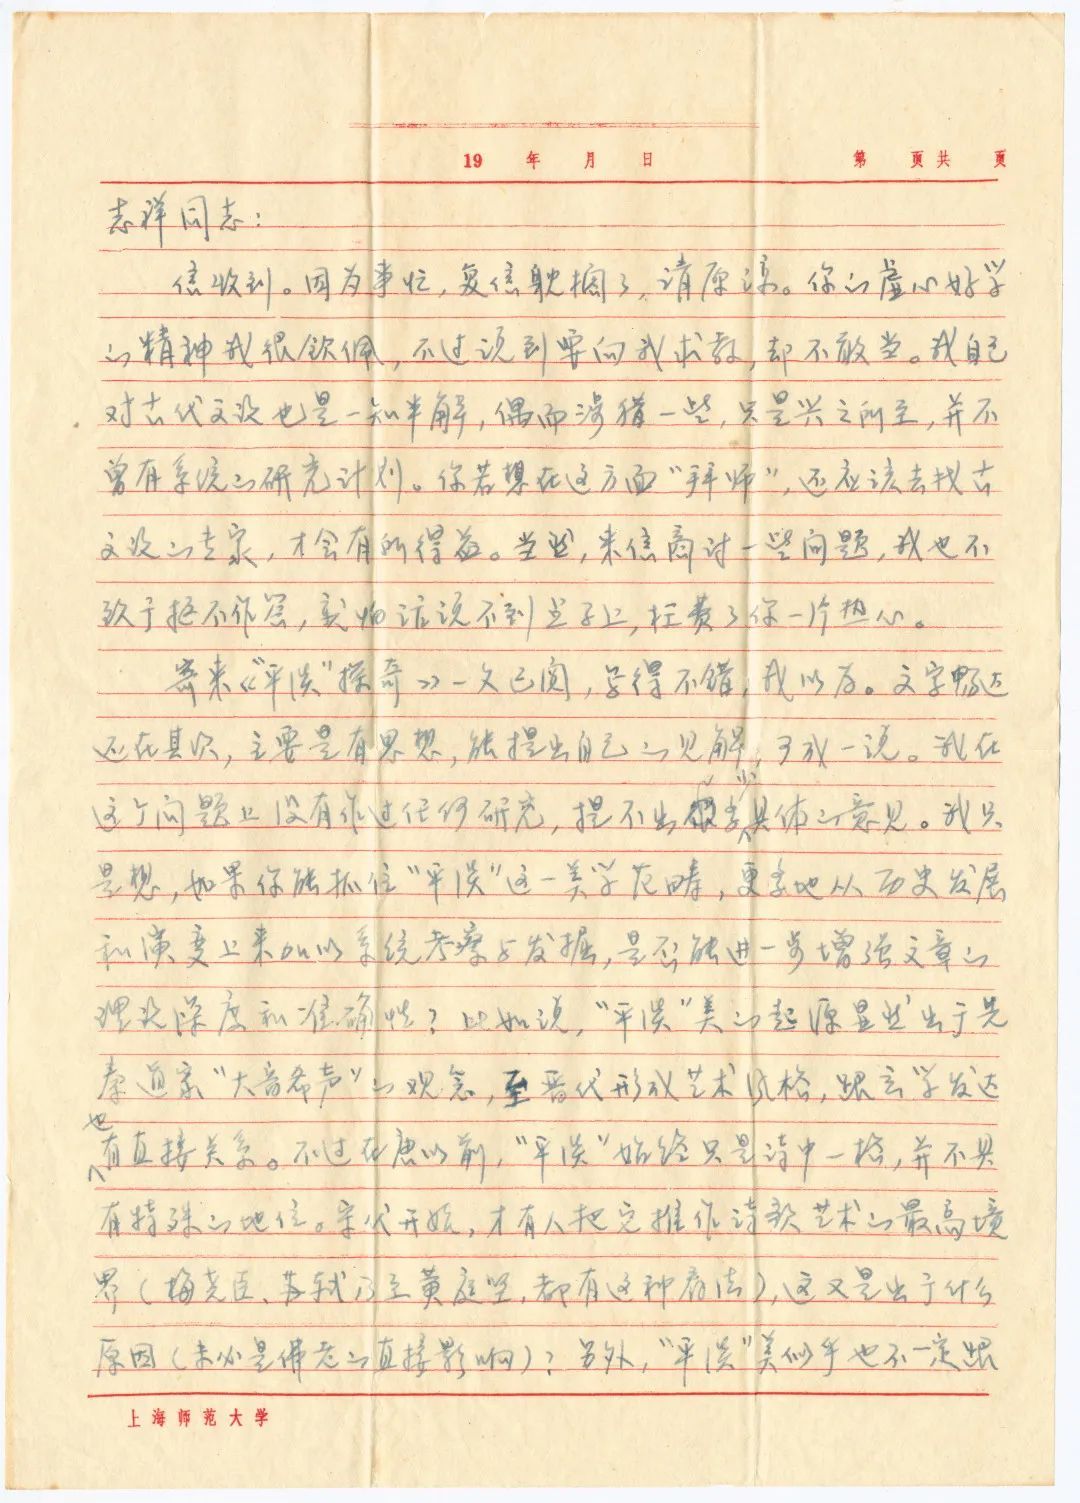 19 年 月 日
第 页共 页
志祥同志：
信收到。因为事忙，复信耽搁了，请原谅。你的虚心好学
的精神我很钦佩，不过说到要向我求教，却不敢当。我自己
对古代文论也是一知半解，偶而涉猎一些，只是兴之所至，并不
曾有系统的研究计划。你若想在这方面“拜师”，还应该去找古
文论的专家，才会有所得益。当然，来信商讨一些问题，我也不
致于拒不作答，就怕话说不到点子上，枉费了你一片热心。
寄来《“平淡”探奇》一文已阅，写得不错，我以为。文字畅达
还在其次，主要是有思想，能提出自己的见解，可成一说。我在
这个问题上没有作过任何研究，提不出多少具体的意见。我只
是想，如果你能抓住“平淡”这一美学范畴，更多地从历史发展
和演变上来加以系统考察与发掘，是否能进一步增强文章的
理论深度和准确性？比如说，“平淡”美的起源显然出于先
秦道家“大音希声”的观念，至晋代形成艺术风格，跟玄学发达
也有直接关系。不过在唐以前，“平淡”始终只是诗中一格，并不具
有特殊的地位。宋代开始，才有人把它推作诗歌艺术的最高境
界（梅尧臣、苏轼乃至黄庭坚，都有这种看法），这又是出于什么
原因（未必是佛老的直接影响）？另外，“平淡”美似乎也不一定跟
上海师范大学